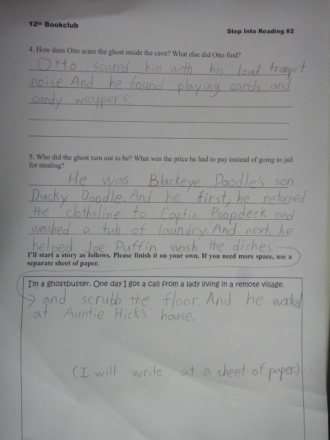 12th Bookclub
Step Into Reading #2
4. How does Otto scare the ghost inside the cave? What else did Otto find?
Otto scared him with his loud trumpet
noise. And he found playing cards and
candy wrappers.
5. Who did the ghost turn out to be? What was the price he had to pay instead of going to jail
for stealing?
He was Blackeye Doodle's son
Ducky Doodle. And he first, he returned
the clothsline to Captin Poopdeck and
washed a tub of laundry. And next, he
helped Joe Puffin wash the dishes
I'll start a story as follows. Please finish it on your own. If you need more space, use a
separate sheet of paper.
I'm a ghostbuster. One day I got a call from a lady living in a remote village.
and scrubb the floor. And he worked
at Auntie Hick's house.
(I will write at a sheet of paper.)